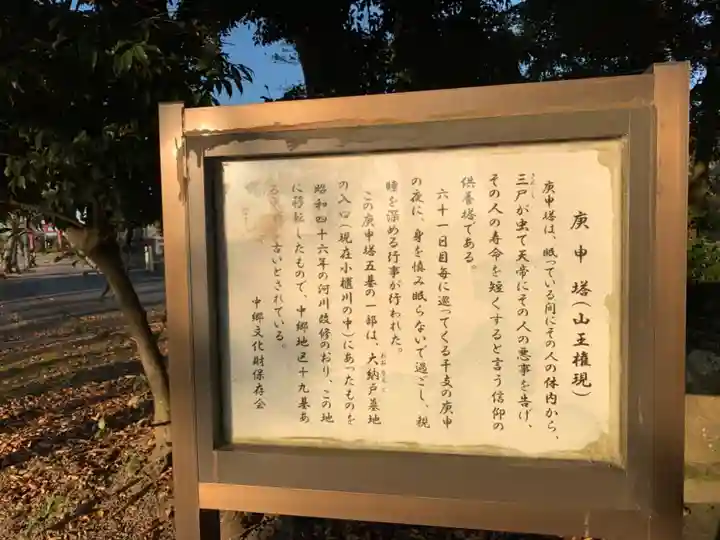 庚申塔(山王権現)
庚申塔は、眠っている間にその人の体内から、
三尸が虫て天帝にその人の悪事を告げ、
その人の寿命を短くすると言う信仰の
供養塔である。
六十一日目毎に巡ってくる干支の庚申
の夜に、身を慎み眠らないで過ごし、親
睦を深める行事が行われた。
この庚申塔五基の一部は、大納戸墓地
の入口(現在小櫃川の中)にあったものを
昭和四十六年の河川改修のおり、この地
に移転したもので、中郷地区十九基あ
る 古いとされている。
中郷文化財保存会